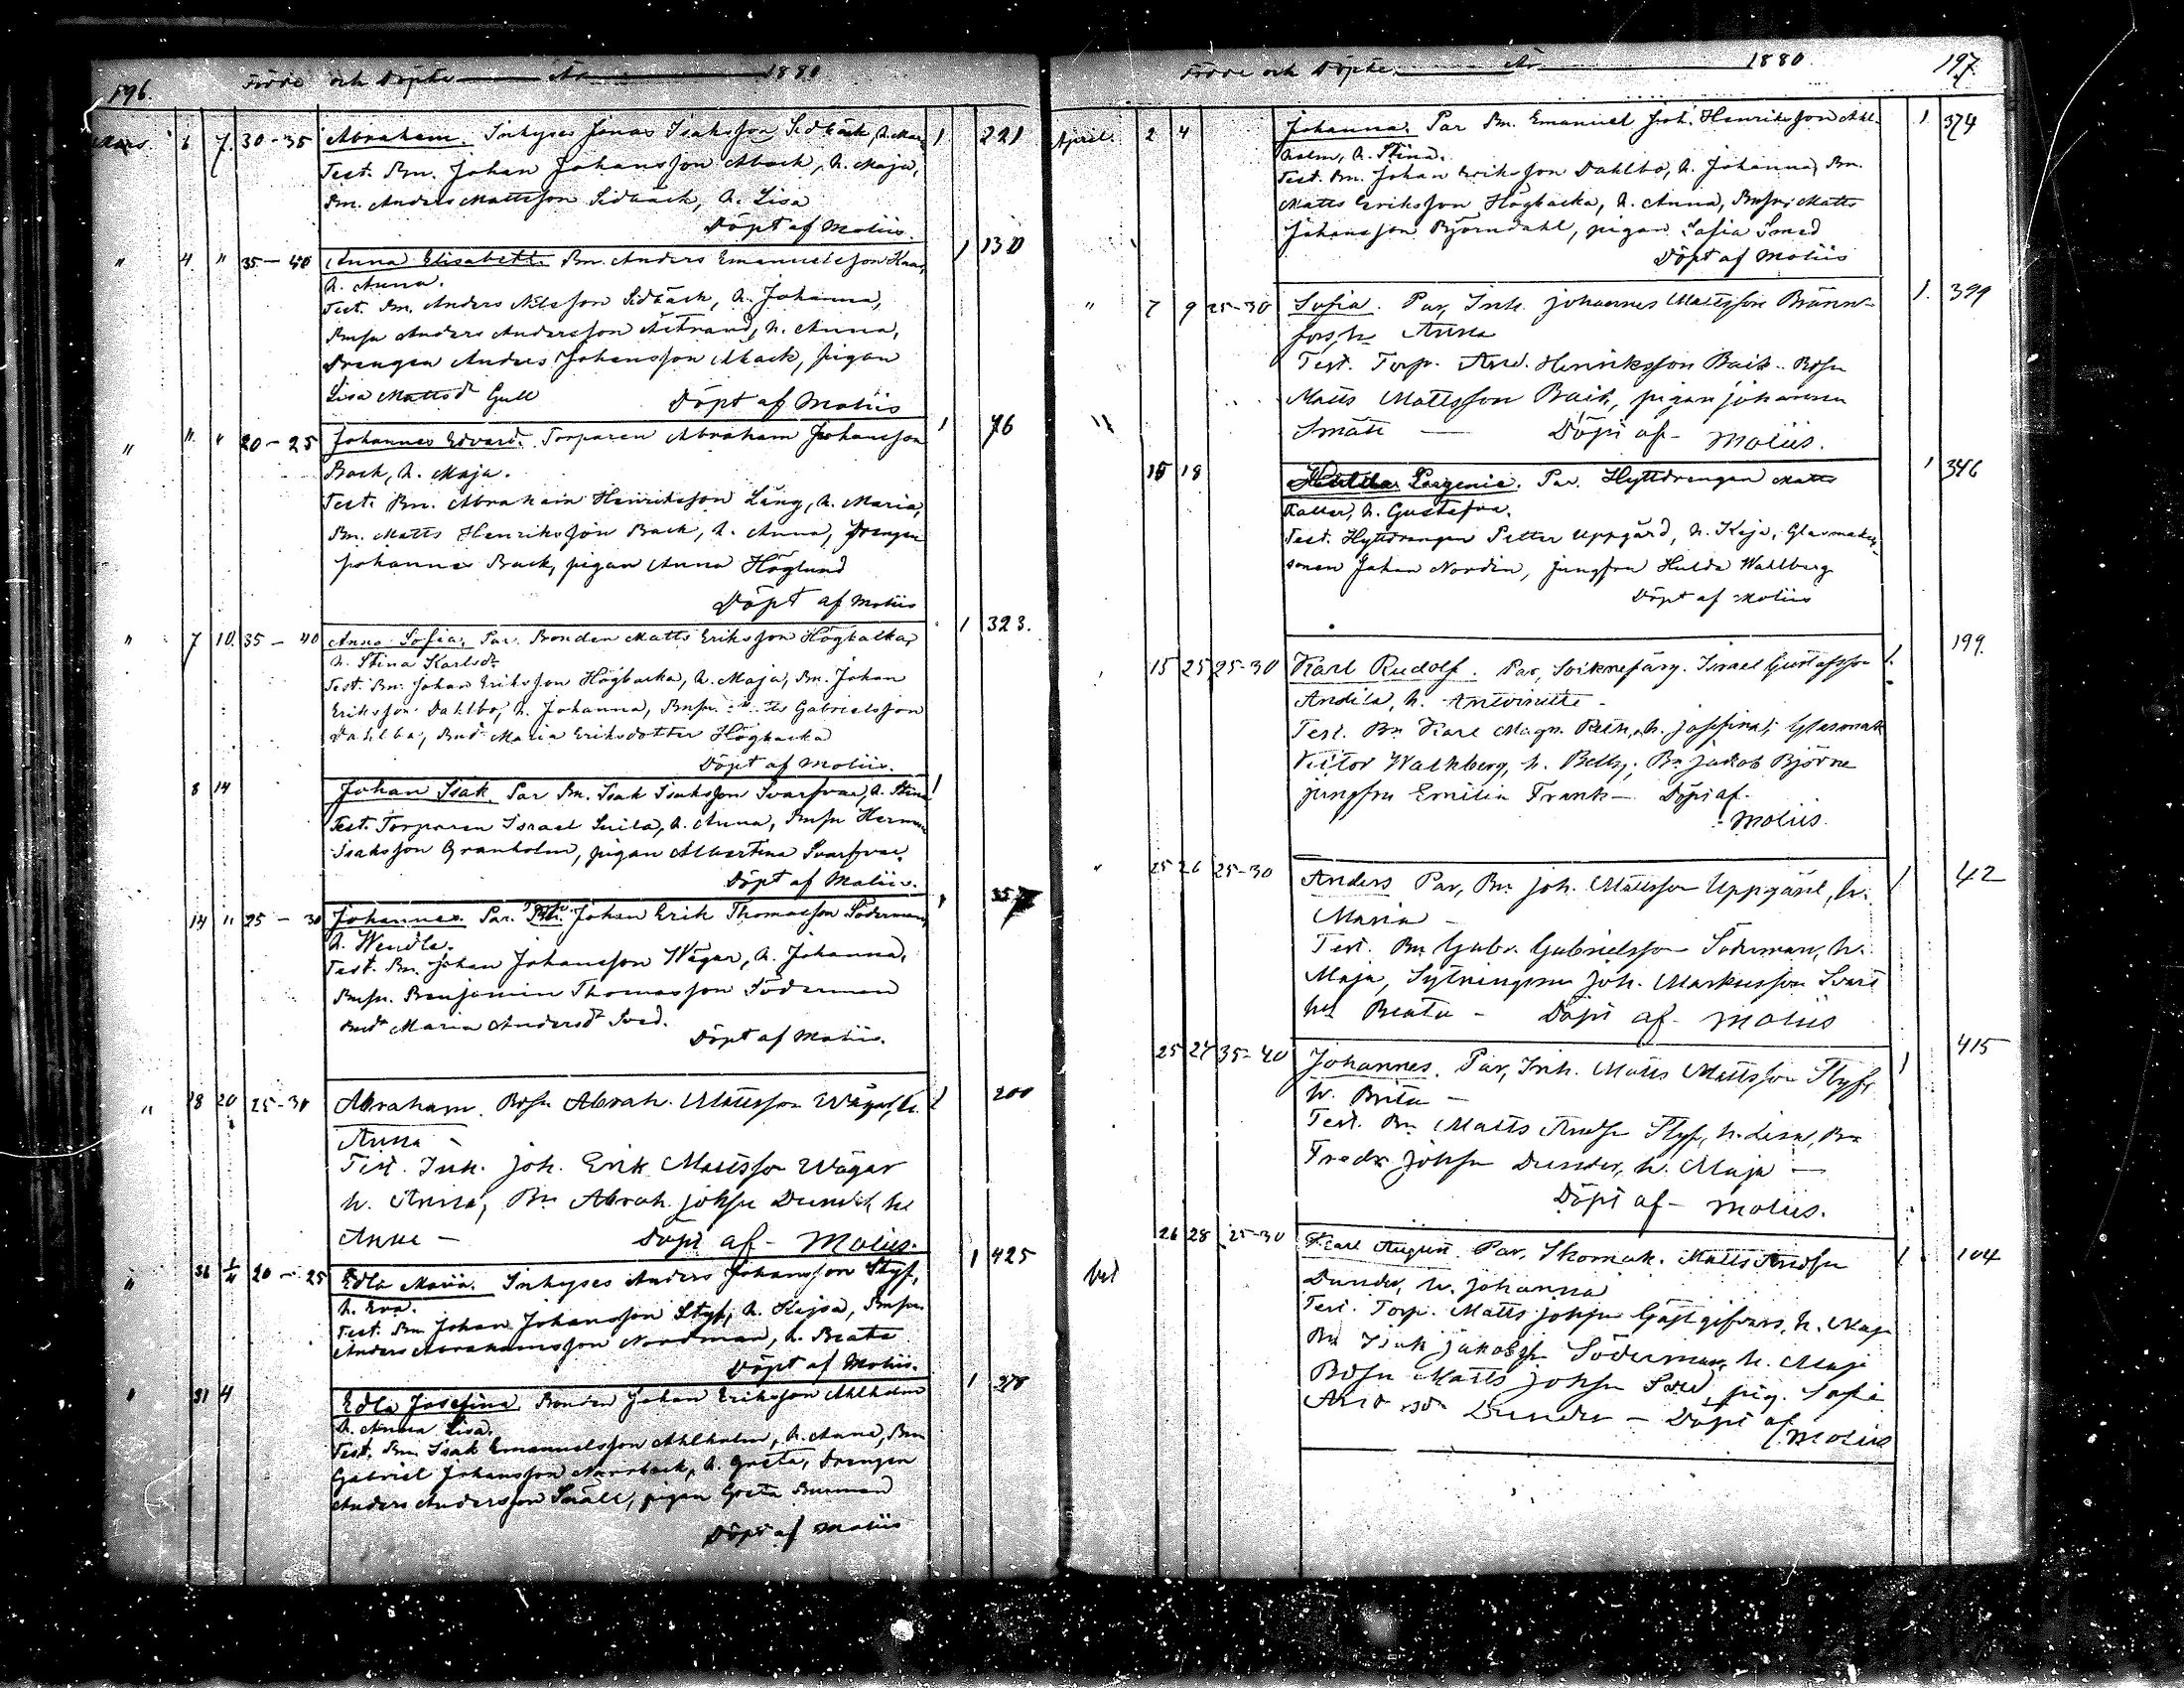 196. Födde och Döpte År 1880.
Mars. 6 7. 30-35 Abraham. Inhyses Jonas Isaksson Sidbäck, h. Maja 1 221
Test. Bn. Johan Johansson Aback, h. Maja,
Bn. Anders Mattsson Sidbäck, h. Lisa
Döpt af Moliis.
" 4. " 35-40 Anna Elisabeth. Bn. Anders Emanuelsson 1 130
h. Anna.
Test. Bn. Anders Nilsson Sidbäck, h. Johanna,
Bnsn Anders Andersson Åstrand, h. Anna,
Drengen Andres Johansson Aback, pigan
Lisa Mattsd Gull Döpt af Moliis
" " " 20-25 Johannes Edvard. Torparen Abraham Johansson 1 76
Back, h. Maja.
Test. Bn. Abraham Henriksson Lång, h. Maria,
Bn. Matts Henriksson Back, h. Anna, Drengen
Johannes Back, pigan Anna Höglund
Döpt af Moliis
" 7 10. 35-40 Anna Sofia. Par. Bonden Matts Eriksson Högbacka, 1 323.
h. Stina Karlsdr
Test. Bn. Johan Eriksson Högbacka, h. Maja, Bn. Johan
Eriksson Dahlbo, h. Johanna, Bnsn. Gabrielsson
Dahlbo, Bnd Maria Eriksdotter Högbacka
Döpt af Moliis.
8 14 Johan Isak. Par Bn. Isak Isaksson Svarfvar, h. Stina 1
Test. Torparen Israel, h. Anna, Bnsn Herman
Isaksson Granholm, pigan Albertina Svarfvar.
Döpt af Moliis.
14 " 25-30 Johannes. Par. Johan Erik Thomasson Söderman, 1 357
h. Wendla.
Test. Bn. Johan Johansson Wägar, h. Johanna,
Bnsn. Benjamin Thomasson Söderman
Bndr Maria Andersdr Sved.
Döpt af Moliis.
" 18 20 25-30 Abraham. Bdsn Abrah. Mattsson Wägar, h. 1 200
Anna -
Test. Inh. Joh. Erik Mattsson Wägar
h. Anna, Bn Abrah. Johsn Dunder h
Anna - Döpt af - Moliis.
" 31 1/4 20-25 Edla Maria. Inhyses Anders Johansson Styf, 1 425
h. Eva.
Test. Bn Johan Johansson Styf, h. Kajsa, Bnsn.
Anders Abrahamsson Nordman, h. Beata
Döpt af Moliis.
" 31 4 Edla Josefina. Bonden Johan Eriksson Ahlholm 1 378
h. Anna Lisa.
Test. Bn. Isak Emanuelsson Ahlholm, h. Anna, Bn
Gabriel Johansson Norrback, h. Greta, Drengen
Anders Andersson Småll, pigan Greta Burman
Döpt af Moliis
Födde och Döpte År 1880. 197.
April. 2 4 Johanna. Par Bn. Emanuel Joh. Henriksson Ahl- 1 374
holm, h. Stina.
Test. Bn. Johan Eriksson Dahlbo, h. Johanna, Bn.
Matts Eriksson Högbacka, h. Anna, Bnsn. Matts
Johansson Björndahl, pigan Sofia Smed
Döpt af Moliis
" 7 9 25-30 Sofia. Par, Inh. Johannes Mattsson Bränn- 1. 399
fors, h. Anna
Test. Torp. And. Henriksson Back. Bdsn
Matts Mattsson Back, pigan Johanna
Smått - Döpt af - Moliis.
" 15 18 Hulda. Par. Hyttdrengen Matts 1 346
h. Gustafva.
Test. Hyttdrengen Petter Uppgård, h. Kajsa, Glasmakar-
sonen Johan Nordin, jungfru Hulda Wahlberg
Döpt af Moliis
15 25 25-30 Karl Rudolf. Par, Sviknefärg. Israel Gustafsson 1. 199
Andila, h. Antoinette -
Test. Bn Karl Magn. h. Josefina; Glasmak
Victor Wahlberg, h. Betty; Bn Jakob Björne
jungfru Emilia Frank - Döpt af -
Moliis.
" 25 26 25-30 Anders Par, Bn Joh. Mattsson Uppgård, h. 1 42
Maria -
Test. Bn Gabr. Gabrielsson Söderman, h.
Maja, Sytningsm Joh. Markusson Svart
h Beata - Döpt af - Moliis
25 27 35-40 Johannes. Par, Inh. Matts Mattsson Styf, 1 415
h. Brita -
Test. Bn Matts Andsn Styf, h. Lisa, Bn
Fredr Johsn Dunder, h. Maja -
Döpt af - Moliis.
26 28 25-30 Karl August. Par, Skomak. Matts Andsn 1 104
Dunder, h. Johanna
Test. Torp. Matts Johsn Gästgifvars, h. Maja
Bn Isak Jakobsn Söderman, h. Maja
Bdsn Matts Johsn Sved, pig. Sofia
Dunder - Döpt af
Moliis